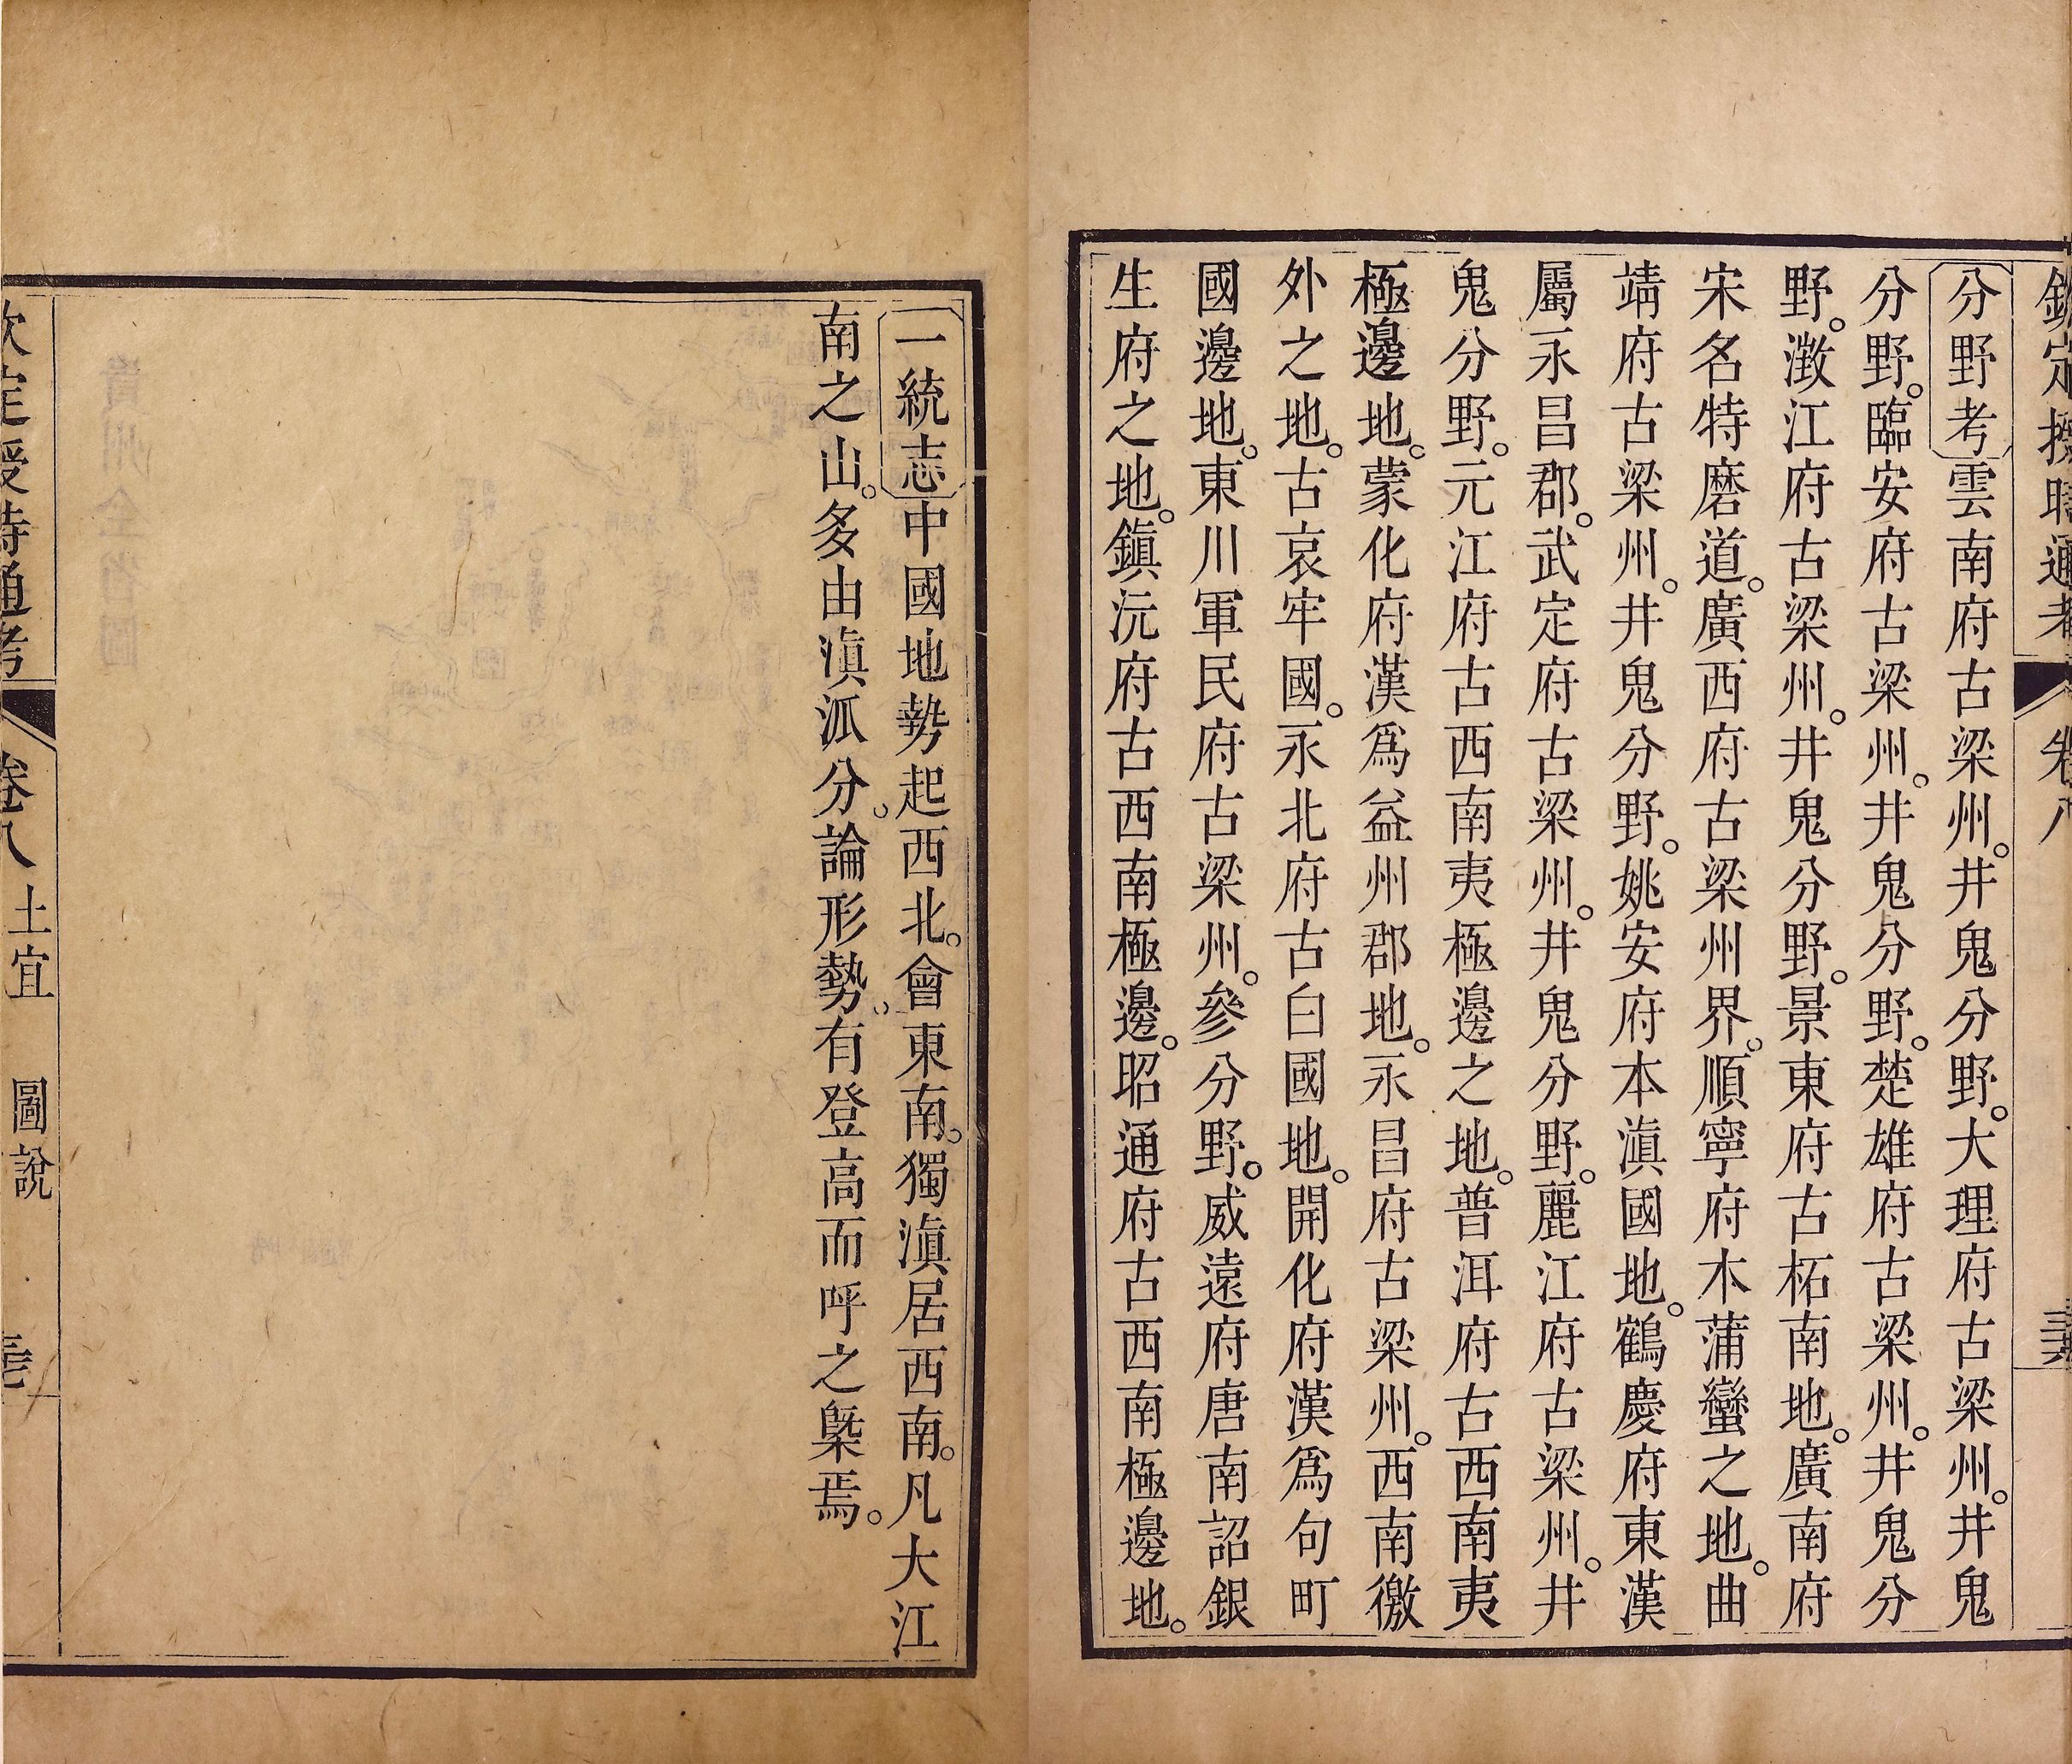 欽定授時通考 卷八
分野考雲南府古梁州。井鬼分野。大理府古梁州。井鬼
分野。臨安府古梁州。井鬼分野。楚雄府古梁州。井鬼分
野。澂江府古梁州。井鬼分野。景東府古柘南地。廣南府
宋名特磨道。廣西府古梁州界。順寧府木蒲蠻之地。曲
靖府古梁州。井鬼分野。姚安府本滇國地。鶴慶府東漢
屬永昌郡。武定府古梁州。井鬼分野。麗江府古梁州。井
鬼分野。元江府古西南夷極邊之地。普洱府古西南夷
極邊地。蒙化府漢爲益州郡地。永昌府古梁州。西南徼
外之地。古哀牢國。永北府古白國地。開化府漢爲句町
國邊地。東川軍民府古梁州。參分野。威遠府唐南詔銀
生府之地。鎭沅府古西南極邊。昭通府古西南極邊地。
一統志中國地勢起西北。會東南。獨滇居西南。凡大江
南之山。多由滇派分。論形勢。有登高而呼之槩焉。
欽定授時通考 卷八 土宜 圖說
貴州全省圖